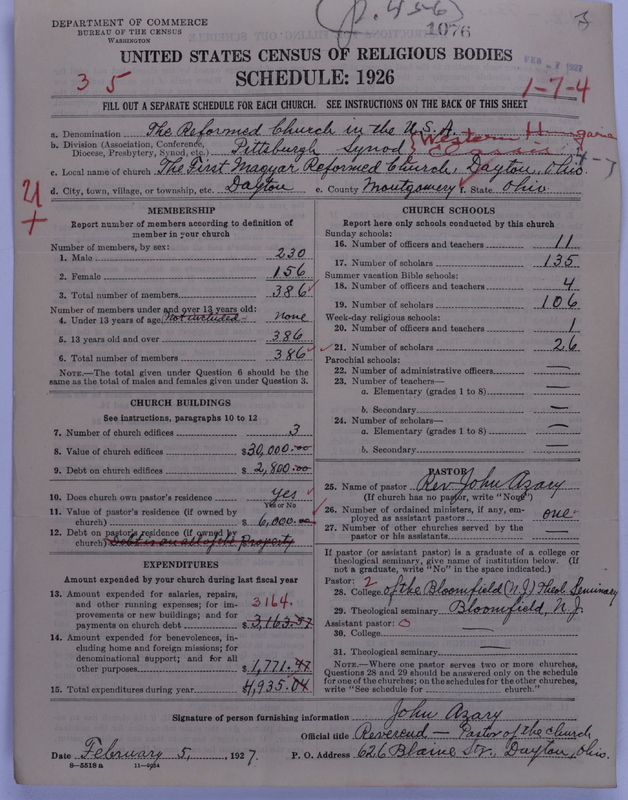 (p. 456)
1076
DEPARTMENT OF COMMERCE
BUREAU OF THE CENSUS
WASHINGTON
UNITED STATES CENSUS OF RELIGIOUS BODIES
SCHEDULE: 1926
3 5
1-7-4
FILL OUT A SEPARATE SCHEDULE FOR EACH CHURCH. SEE INSTRUCTIONS ON THE BACK OF THIS SHEET
a. Denomination The Reformed Church in the U.S.A.
b. Division (Association, Conference, Diocese, Presbytery, Synod, etc.) Pittsburgh Synod } Western Hungarian Classis
c. Local name of church The First Magyar Reformed Church, Dayton, Ohio
d. City, town, village, or township, etc. Dayton e. County Montgomery f. State Ohio
MEMBERSHIP
Report number of members according to definition of
member in your church
Number of members, by sex:
1. Male 230
2. Female 156
3. Total number of members 386
Number of members under and over 13 years old:
4. Under 13 years of age Not included none
5. 13 years old and over 386
6. Total number of members 386
NOTE.—The total given under Question 6 should be the
same as the total of males and females given under Question 3.
CHURCH BUILDINGS
See instructions, paragraphs 10 to 12
7. Number of church edifices 3
8. Value of church edifices $30,000.00
9. Debt on church edifices $2,800.00
10. Does church own pastor's residence yes
Yes or No
11. Value of pastor's residence (if owned by
church) $6,000.00
12. Debt on pastor's residence (if owned by
church) Debt is on all of ect property
EXPENDITURES
Amount expended by your church during last fiscal year
13. Amount expended for salaries, repairs,
and other running expenses; for im-
provements or new buildings; and for
payments on church debt 3164. $3,163.57
14. Amount expended for benevolences, in-
cluding home and foreign missions; for
denominational support; and for all
other purposes $1,771.47
15. Total expenditures during year $4,935.04
CHURCH SCHOOLS
Report here only schools conducted by this church
Sunday schools:
16. Number of officers and teachers 11
17. Number of scholars 135
Summer vacation Bible schools:
18. Number of officers and teachers 4
19. Number of scholars 106
Week-day religious schools:
20. Number of officers and teachers 1
21. Number of scholars 26
Parochial schools:
22. Number of administrative officers —
23. Number of teachers—
a. Elementary (grades 1 to 8) —
b. Secondary —
24. Number of scholars—
a. Elementary (grades 1 to 8) —
b. Secondary —
PASTOR
25. Name of pastor Rev. John Azary
(If church has no pastor, write "None")
26. Number of ordained ministers, if any, em-
ployed as assistant pastors one
27. Number of other churches served by the
pastor or his assistants —
If pastor (or assistant pastor) is a graduate of a college or
theological seminary, give name of institution below. (If
not a graduate, write "No" in the space indicated.)
Pastor: 2
28. College of the Bloomfield (N.J.) Theol. Seminary
29. Theological seminary Bloomfield, N.J.
Assistant pastor: 0
30. College —
31. Theological seminary —
NOTE.—Where one pastor serves two or more churches,
Questions 28 and 29 should be answered only on the schedule
for one of the churches; on the schedules for the other churches,
write "See schedule for church."
Signature of person furnishing information John Azary
Official title Reverend — Pastor of the church
Date February 5, 1927. P. O. Address 626 Blaine Str., Dayton, Ohio.
8—5518 a 11—9164